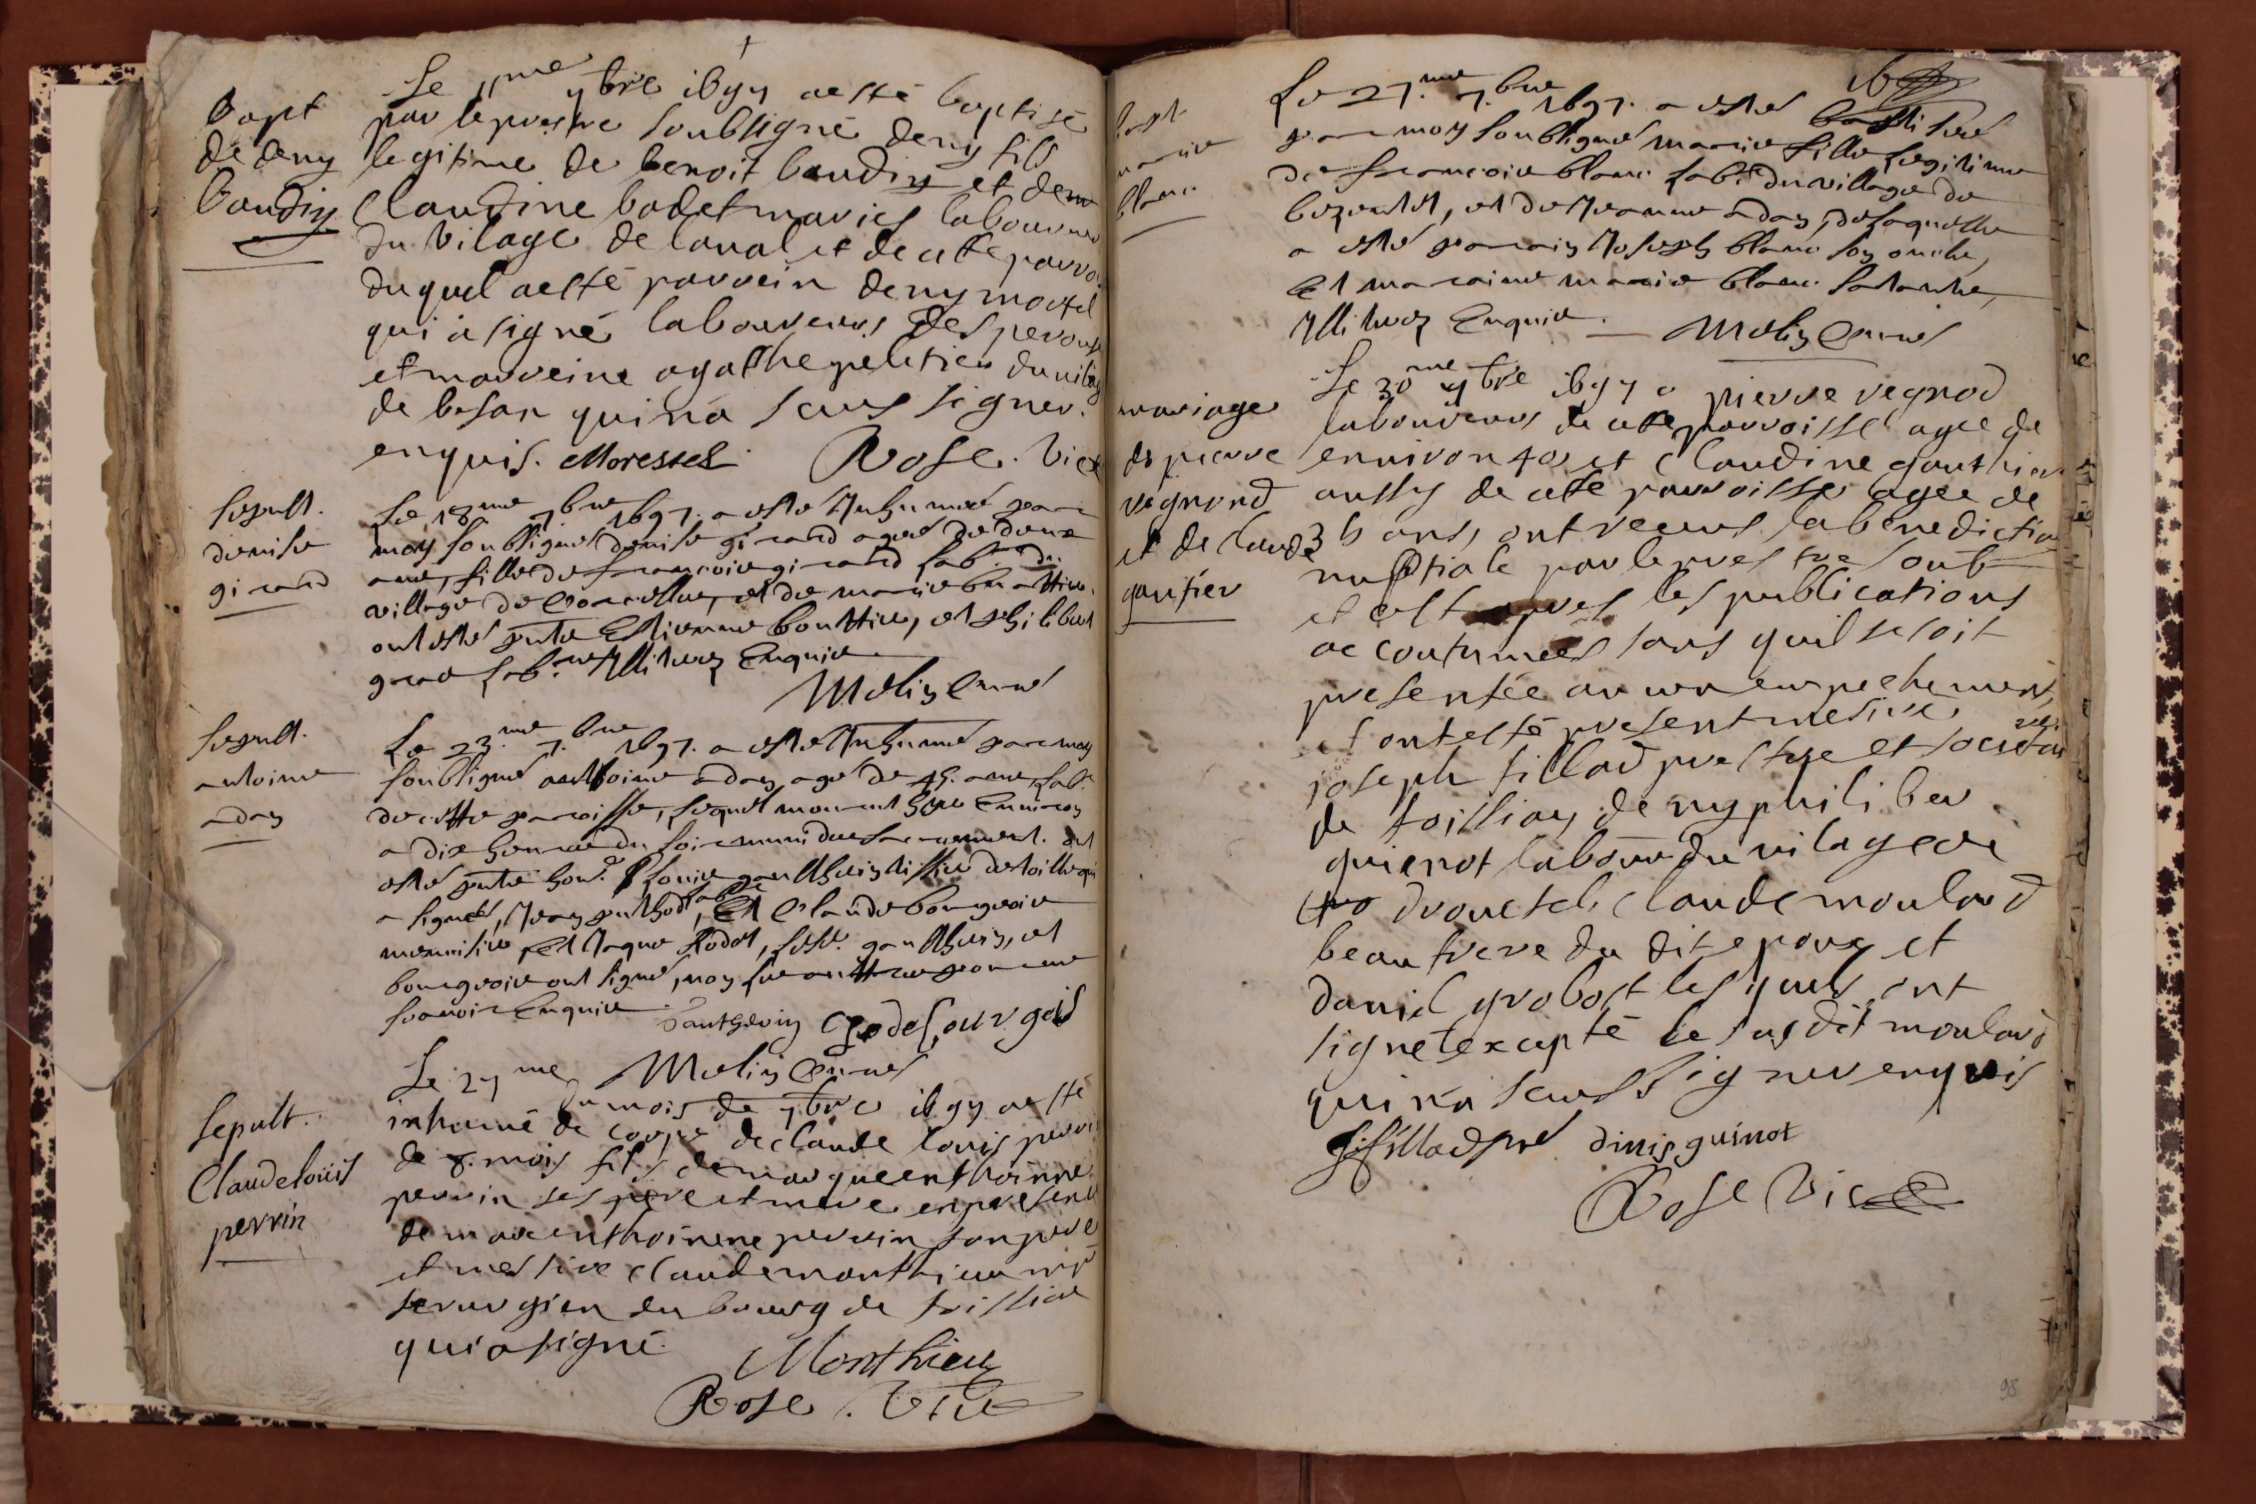 Bapt
de deny
baudin
Le 11me 7bre 1697 a esté baptisé
par le prestre soubsigné deny fils
legitime de benoit baudin et de
Claudine badet mariés laboureur
du vilage de laval et de cete parroi
duquel a esté parrein deny mortel
qui a signé laboureur des perous
et marreine agathe peletier du vilag
de besan qui n'a sceus signer
enquis. Moressel Rose. Vic
Sepult.
denise
girard
Le 18me 7bre 1697. a esté Inhumée par
moy soubsigné denise girard agée de deux
ans, fille de francois girard lab. du
village de et de marie
ont esté pnts Estienne bouttier, et philibert
lab. Illiterez Enquis
Molin Curé
Sepult.
antoine
adan
Le 23.me 7.bre 1697. a esté Inhumé par moy
soubsigné anthoine adan agé de 45. ans, lab.
de cette paroisse, lequel mourut hier Environ
a dix heures du soir muni des sacrement. ont
esté pnts hon. Louis gautherin tissier de toille qui
a signé, Jean puthod lab. Et Claude bourgeois
menuisier, Et Jaque Godet, lesd. gautherin, et
bourgeois ont signé, non les autres pour ne
scavoir Enquis
Gautherin Godet bourgois
Molin Curé
Sepult.
Claude loüis
perrin
Le 27me du mois de 7bre 1697 a esté
inhumé de corps de claude louis perri
de 8. mois fils de marque enthoinne
perrin ses pere et mere en presence
de marc enthoinene perrin son pere
et messire claude monthieu mr
serurgien du bourg de toissia
qui a signé
Monthieu
Rose. Vic
Bapt
marie
blanc
Le 27.me 7.bre 1697. a esté baptisée
par moy soubsigné marie fille legitime
de francois blanc lab. du village de
et de Jeanne adan, de laquelle
a esté parain Joseph blanc son oncle,
Et maraine marie blanc sa tante,
Illiterez Enquis. Molin Curé
mariage
de pierre
regnond
et de claude
gautier
Le 30me 7bre 1697 a pierre regnod
laboureur de cete parroisse agee de
environ 40 et Claudine gauthier
aussy de cete parroisse agee de
35 ans, ont receus la benediction
nuptiale par le prestre soub
et cest apres les publications
accoutumees sans quil se soit
presentée aucun empechement,
et ont esté present mesire
joseph fillod prestre et societai
de toissiay, deny philiber
guienot labour du vilage de
drouet claude moulard
beau frere du dit epoux et
daniel grobost lesquels ont
signé excepté le susdit moulard
qui n'a sceus signer enquis
J fillod pre dinis guinot
Rose Vic
98